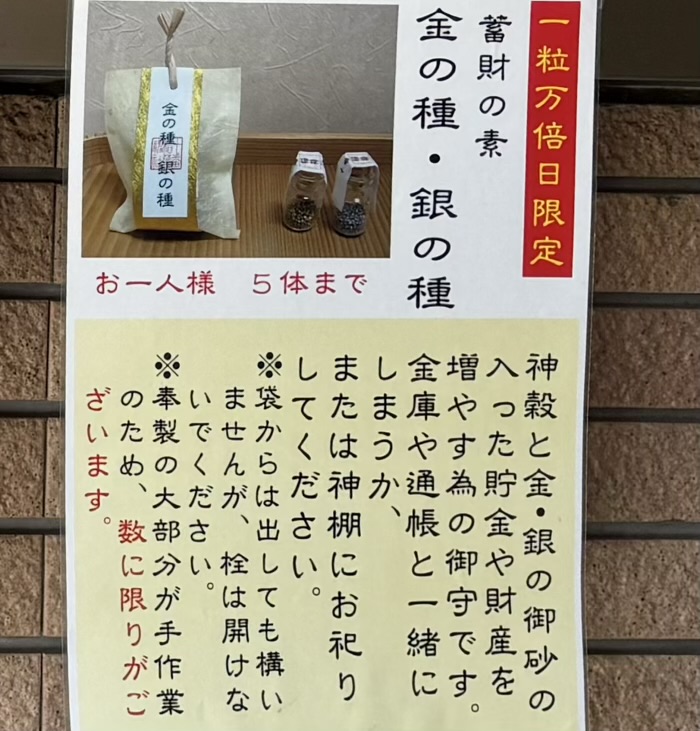 一粒万倍日限定
蓄財の素
金の種・銀の種
金の種
銀の種
お一人様 5体まで
神穀と金・銀の御砂の
入った貯金や財産を
増やす為の御守です。
金庫や通帳と一緒に
しまうか、
または神棚にお祀り
してください。
※袋からは出しても構い
ませんが、栓は開けな
いでください。
※奉製の大部分が手作業
のため、数に限りがご
ざいます。